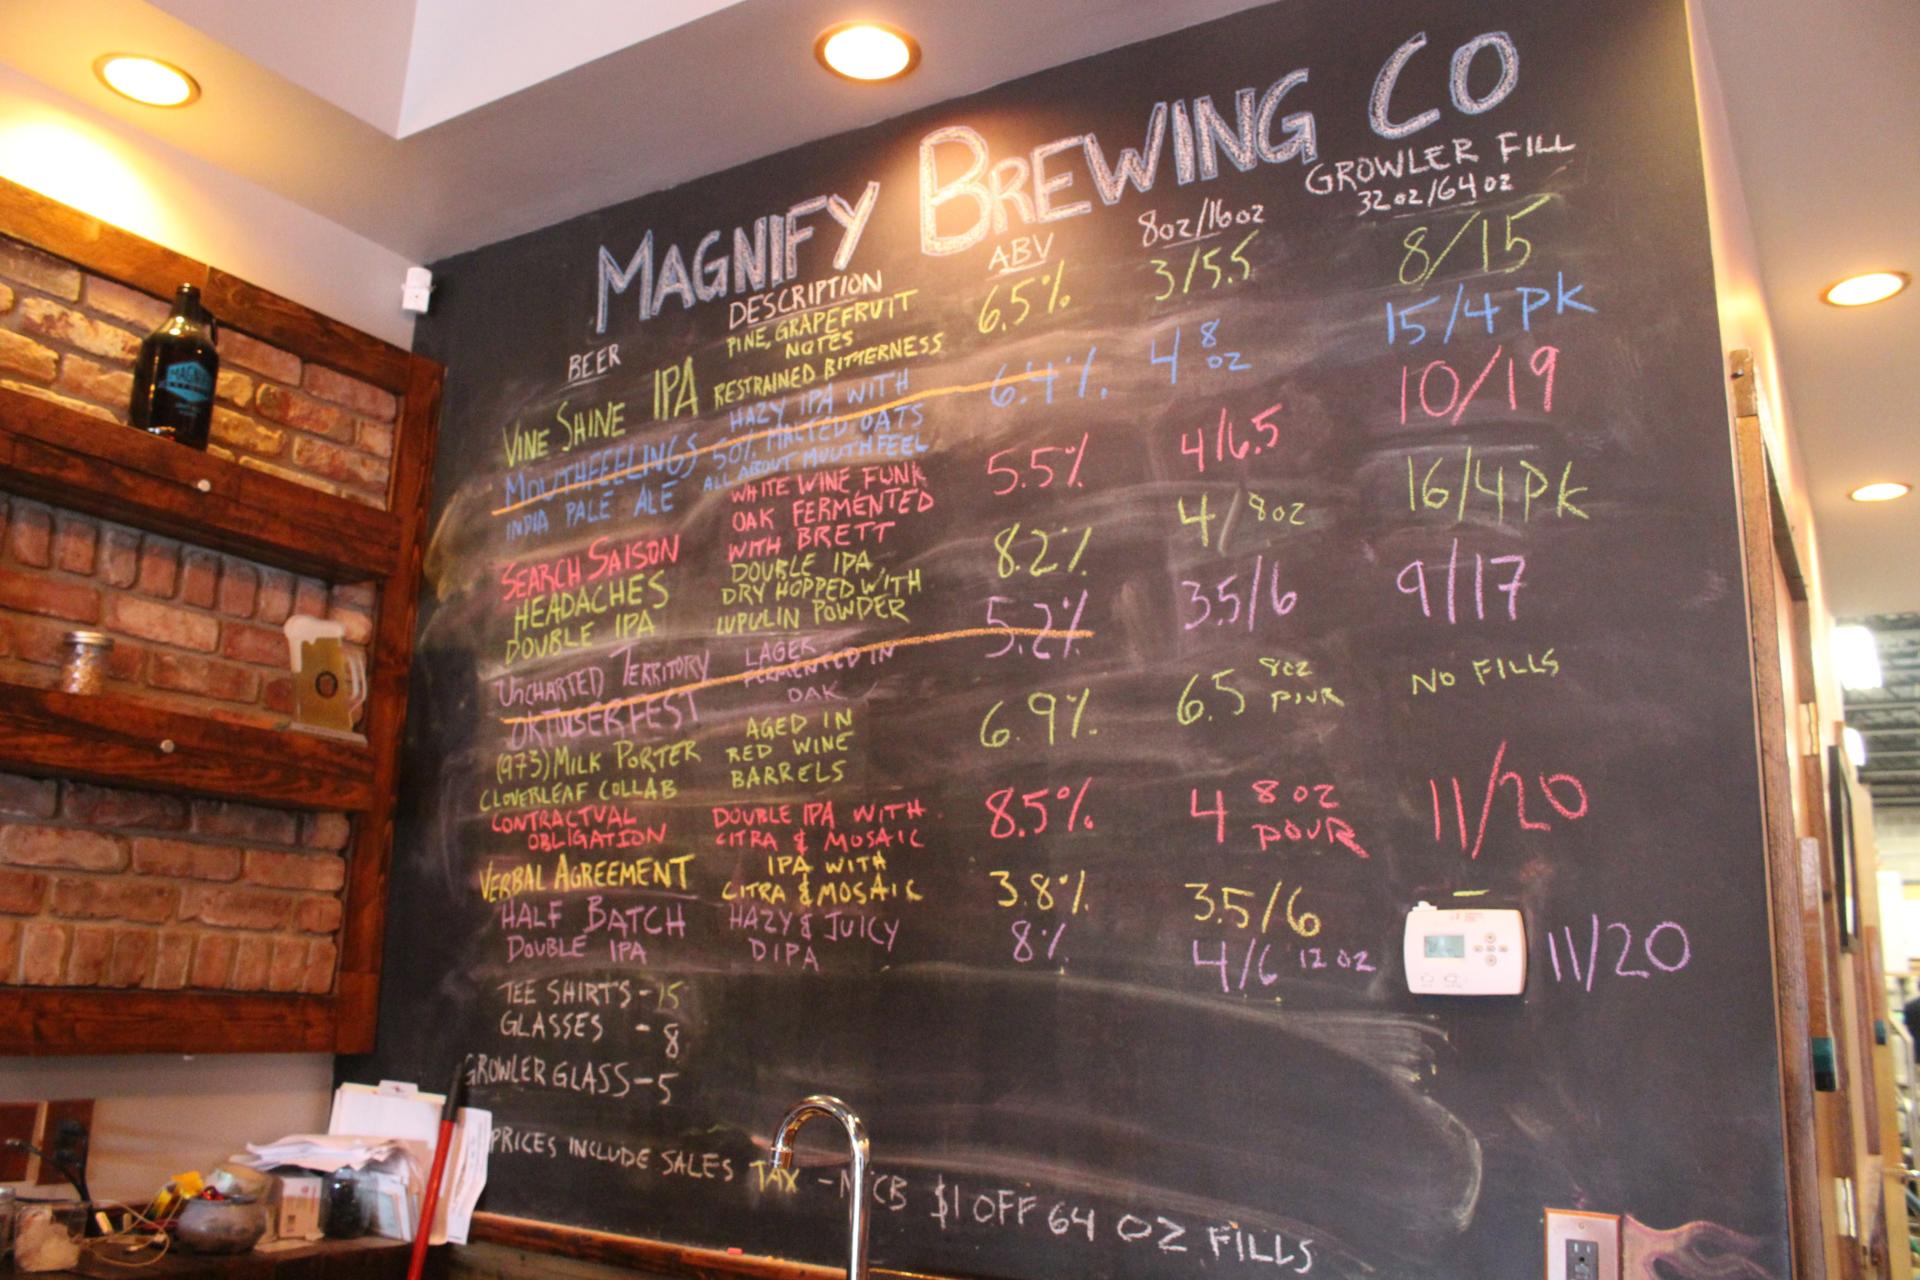 MAGNIFY BREWING CO
BEER DESCRIPTION ABV 8oz/16oz GROWLER FILL
32oz/64oz
VINE SHINE IPA PINE, GRAPEFRUIT 6.5% 3/5.5 8/15
NOTES
RESTRAINED BITTERNESS
MOUTHFEELINGS HAZY IPA WITH 6.4% 4 8 OZ 15/4 PK
INDIA PALE ALE 50% MALTED OATS
ALL ABOUT MOUTHFEEL
SEARCH SAISON WHITE WINE FUNK 5.5% 4/6.5 10/19
OAK FERMENTED
WITH BRETT
HEADACHES DOUBLE IPA 8.2% 4/8oz 16/4PK
DOUBLE IPA DRY HOPPED WITH
LUPULIN POWDER
UNCHARTED TERRITORY LAGER 5.2% 3.5/6 9/17
OKTOBERFEST FERMENTED IN
OAK
(973) MILK PORTER AGED IN 6.9% 6.5 8oz POUR NO FILLS
CLOVERLEAF COLLAB RED WINE
BARRELS
CONTRACTUAL DOUBLE IPA WITH 8.5% 4 8 OZ POUR 11/20
OBLIGATION CITRA & MOSAIC
VERBAL AGREEMENT IPA WITH 3.8% 3.5/6 –
CITRA & MOSAIC
HALF BATCH HAZY & JUICY 8% 4/6 12 OZ 11/20
DOUBLE IPA DIPA
TEE SHIRTS - 15
GLASSES - 8
GROWLER GLASS - 5
PRICES INCLUDE SALES TAX - CB $1 OFF 64 OZ FILLS